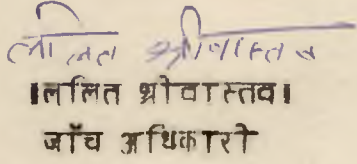 ललित श्रीवास्तव
।ललित श्रीवास्तव।
जाँच अधिकारी